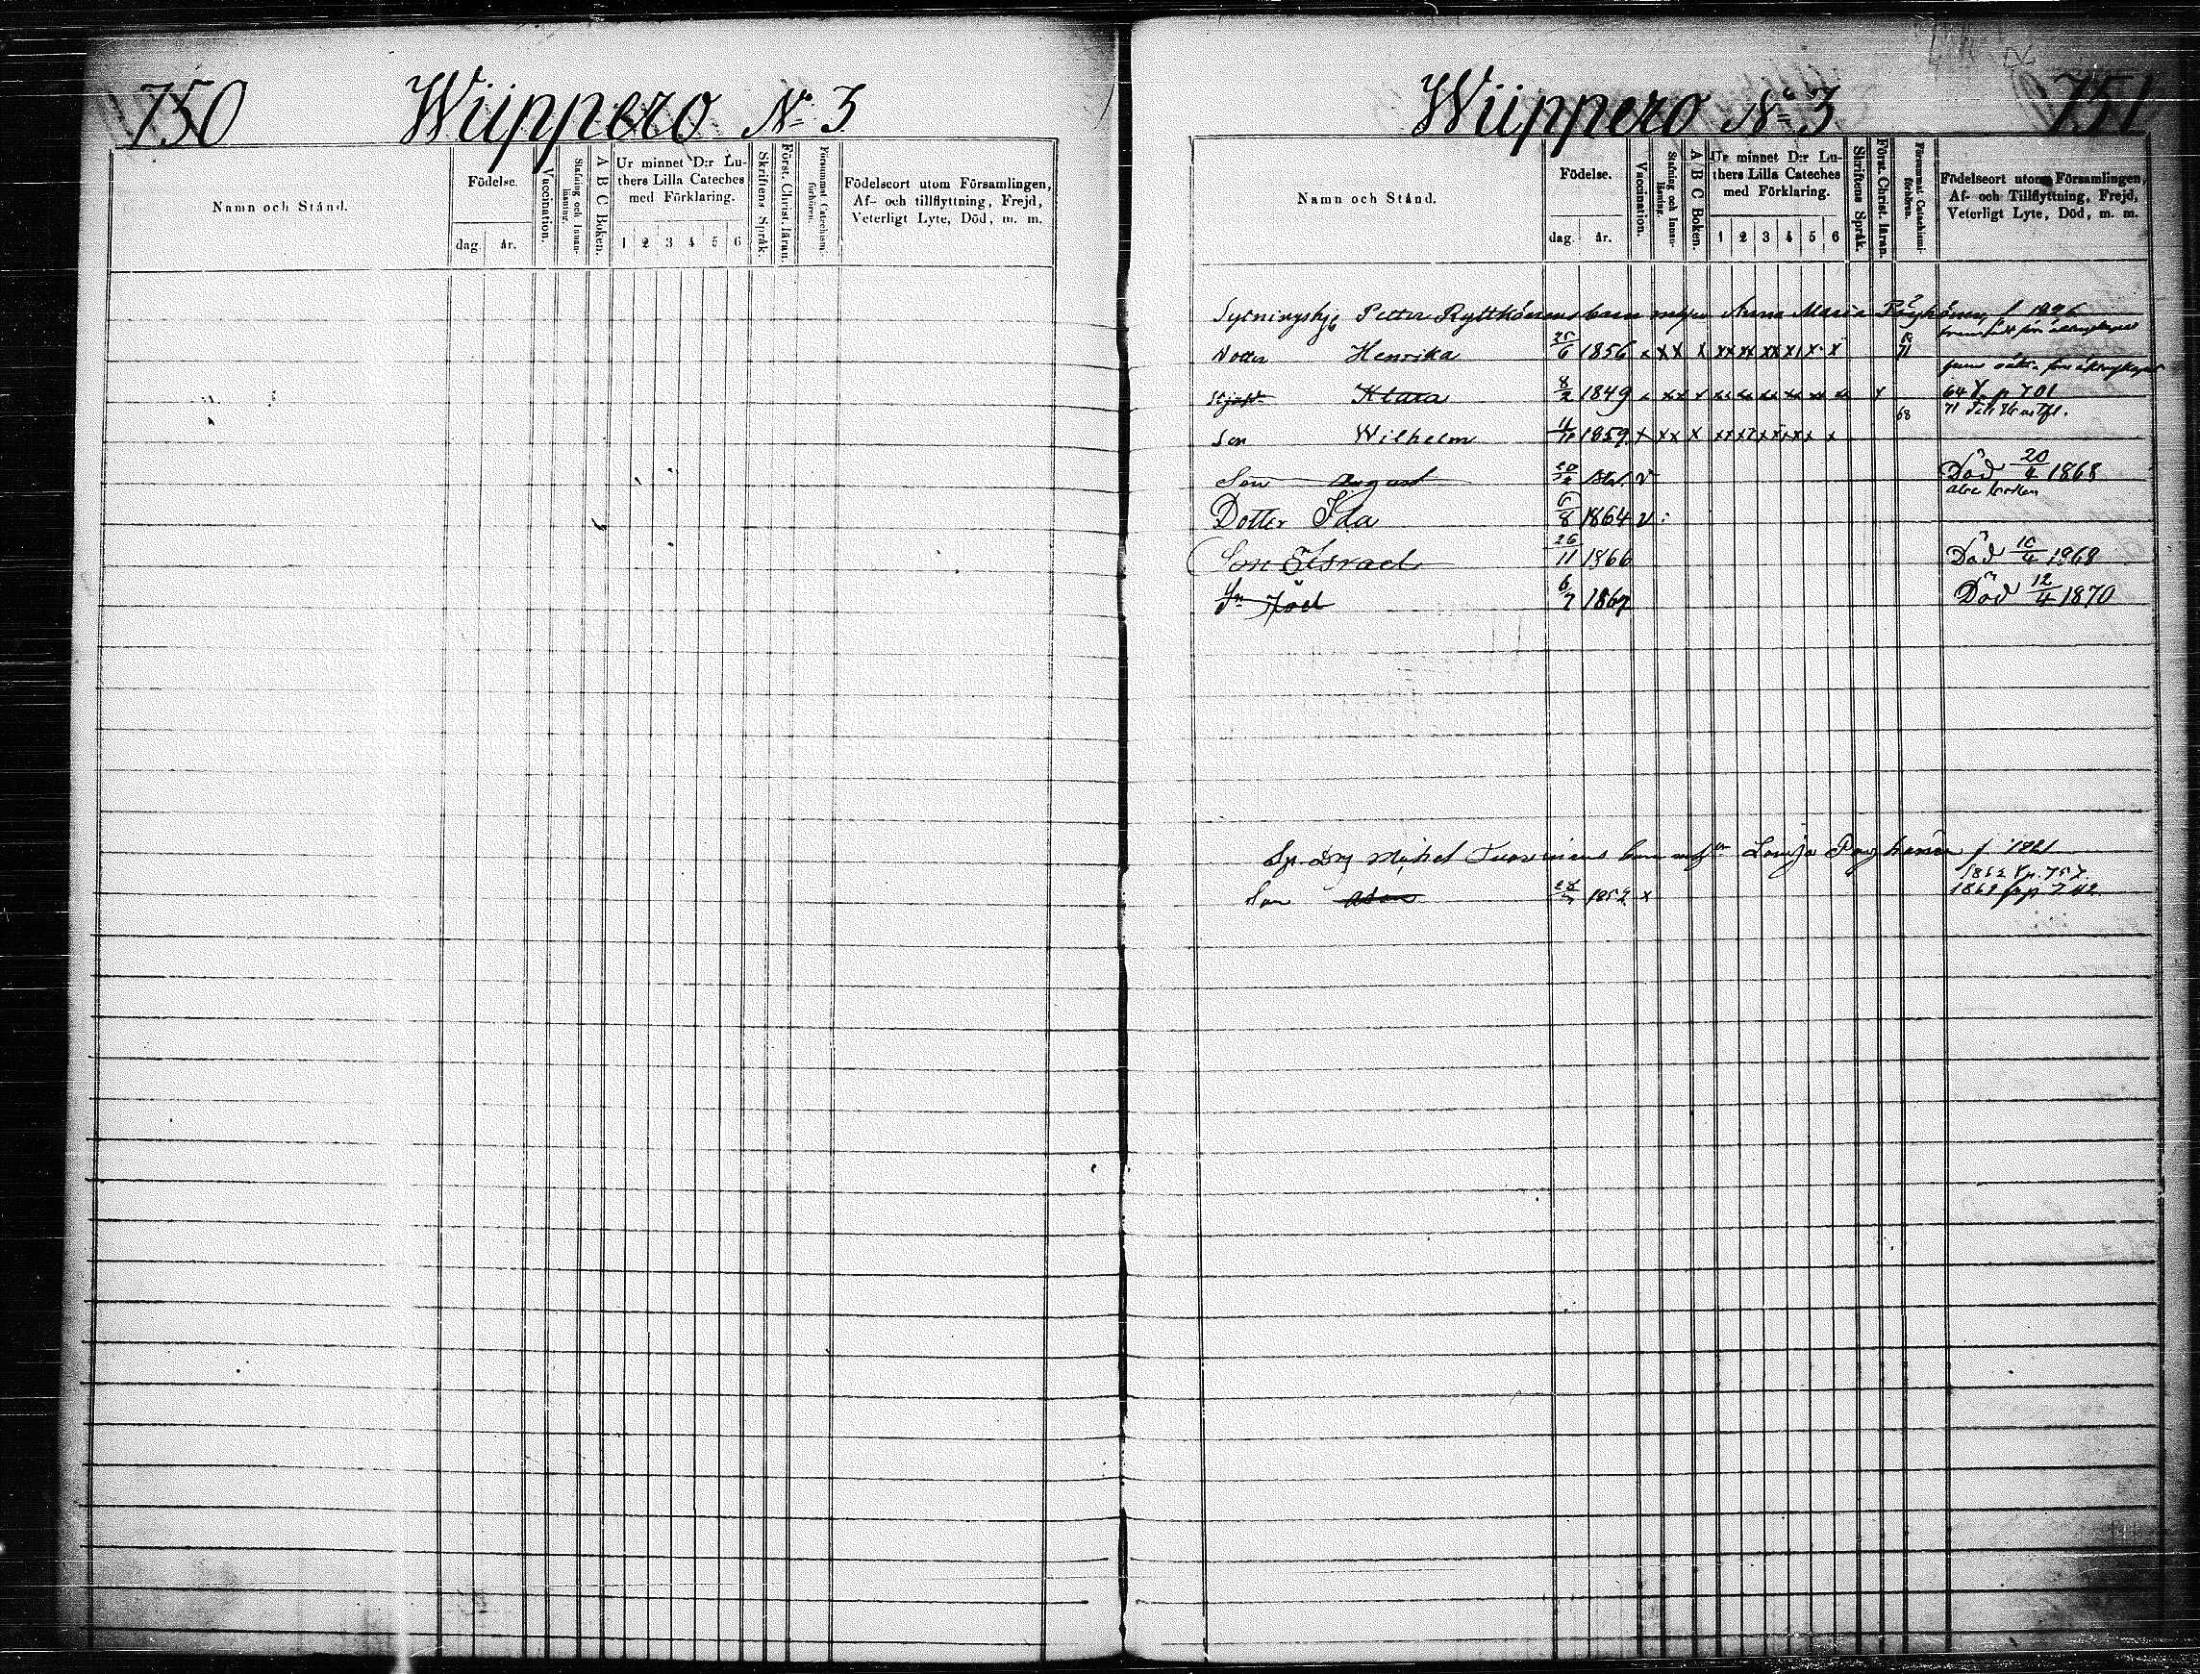 750 Wiippero No 3
Namn och Stånd.
Födelse.
dag. år.
Vaccination.
Stafning och Innanläsning.
A B C Boken.
Ur minnet D:r Luthers Lilla Cateches med Förklaring.
1 2 3 4 5 6
Skriftens Språk.
Först. Christ. läran.
Försummat Catechismiförhören.
Födelseort utom Församlingen,
Af- och tillflyttning, Frejd,
Veterligt Lyte, Död, m. m.
Wiippero No 3 751
Namn och Stånd.
Födelse.
dag. år.
Vaccination.
Stafning och Innanläsning.
A B C Boken.
Ur minnet D:r Luthers Lilla Cateches med Förklaring.
1 2 3 4 5 6
Skriftens Språk.
Först. Christ. läran.
Försummat Catechismiförhören.
Födelseort utom Församlingen,
Af- och Tillflyttning, Frejd,
Veterligt Lyte, Död, m. m.
Petter Ryttkönens barn Anna Maria f 1826
Dotter Henrika 25/6 1856 x x x x xx xx xx x x x 71
Klara 8/2 1849 64 p 701
Son Wilhelm 4/11 1859 x xx x 68
Son August Död 20/4 1868
Dotter Ida 6/8 1864 v
Son Israel 26/11 1866 Död 10/4 1868
Joel 6/7 1867 Död 12/4 1870
Michel barn f 1821
1862 p. 757.
Son 1852 x 1862 p 742